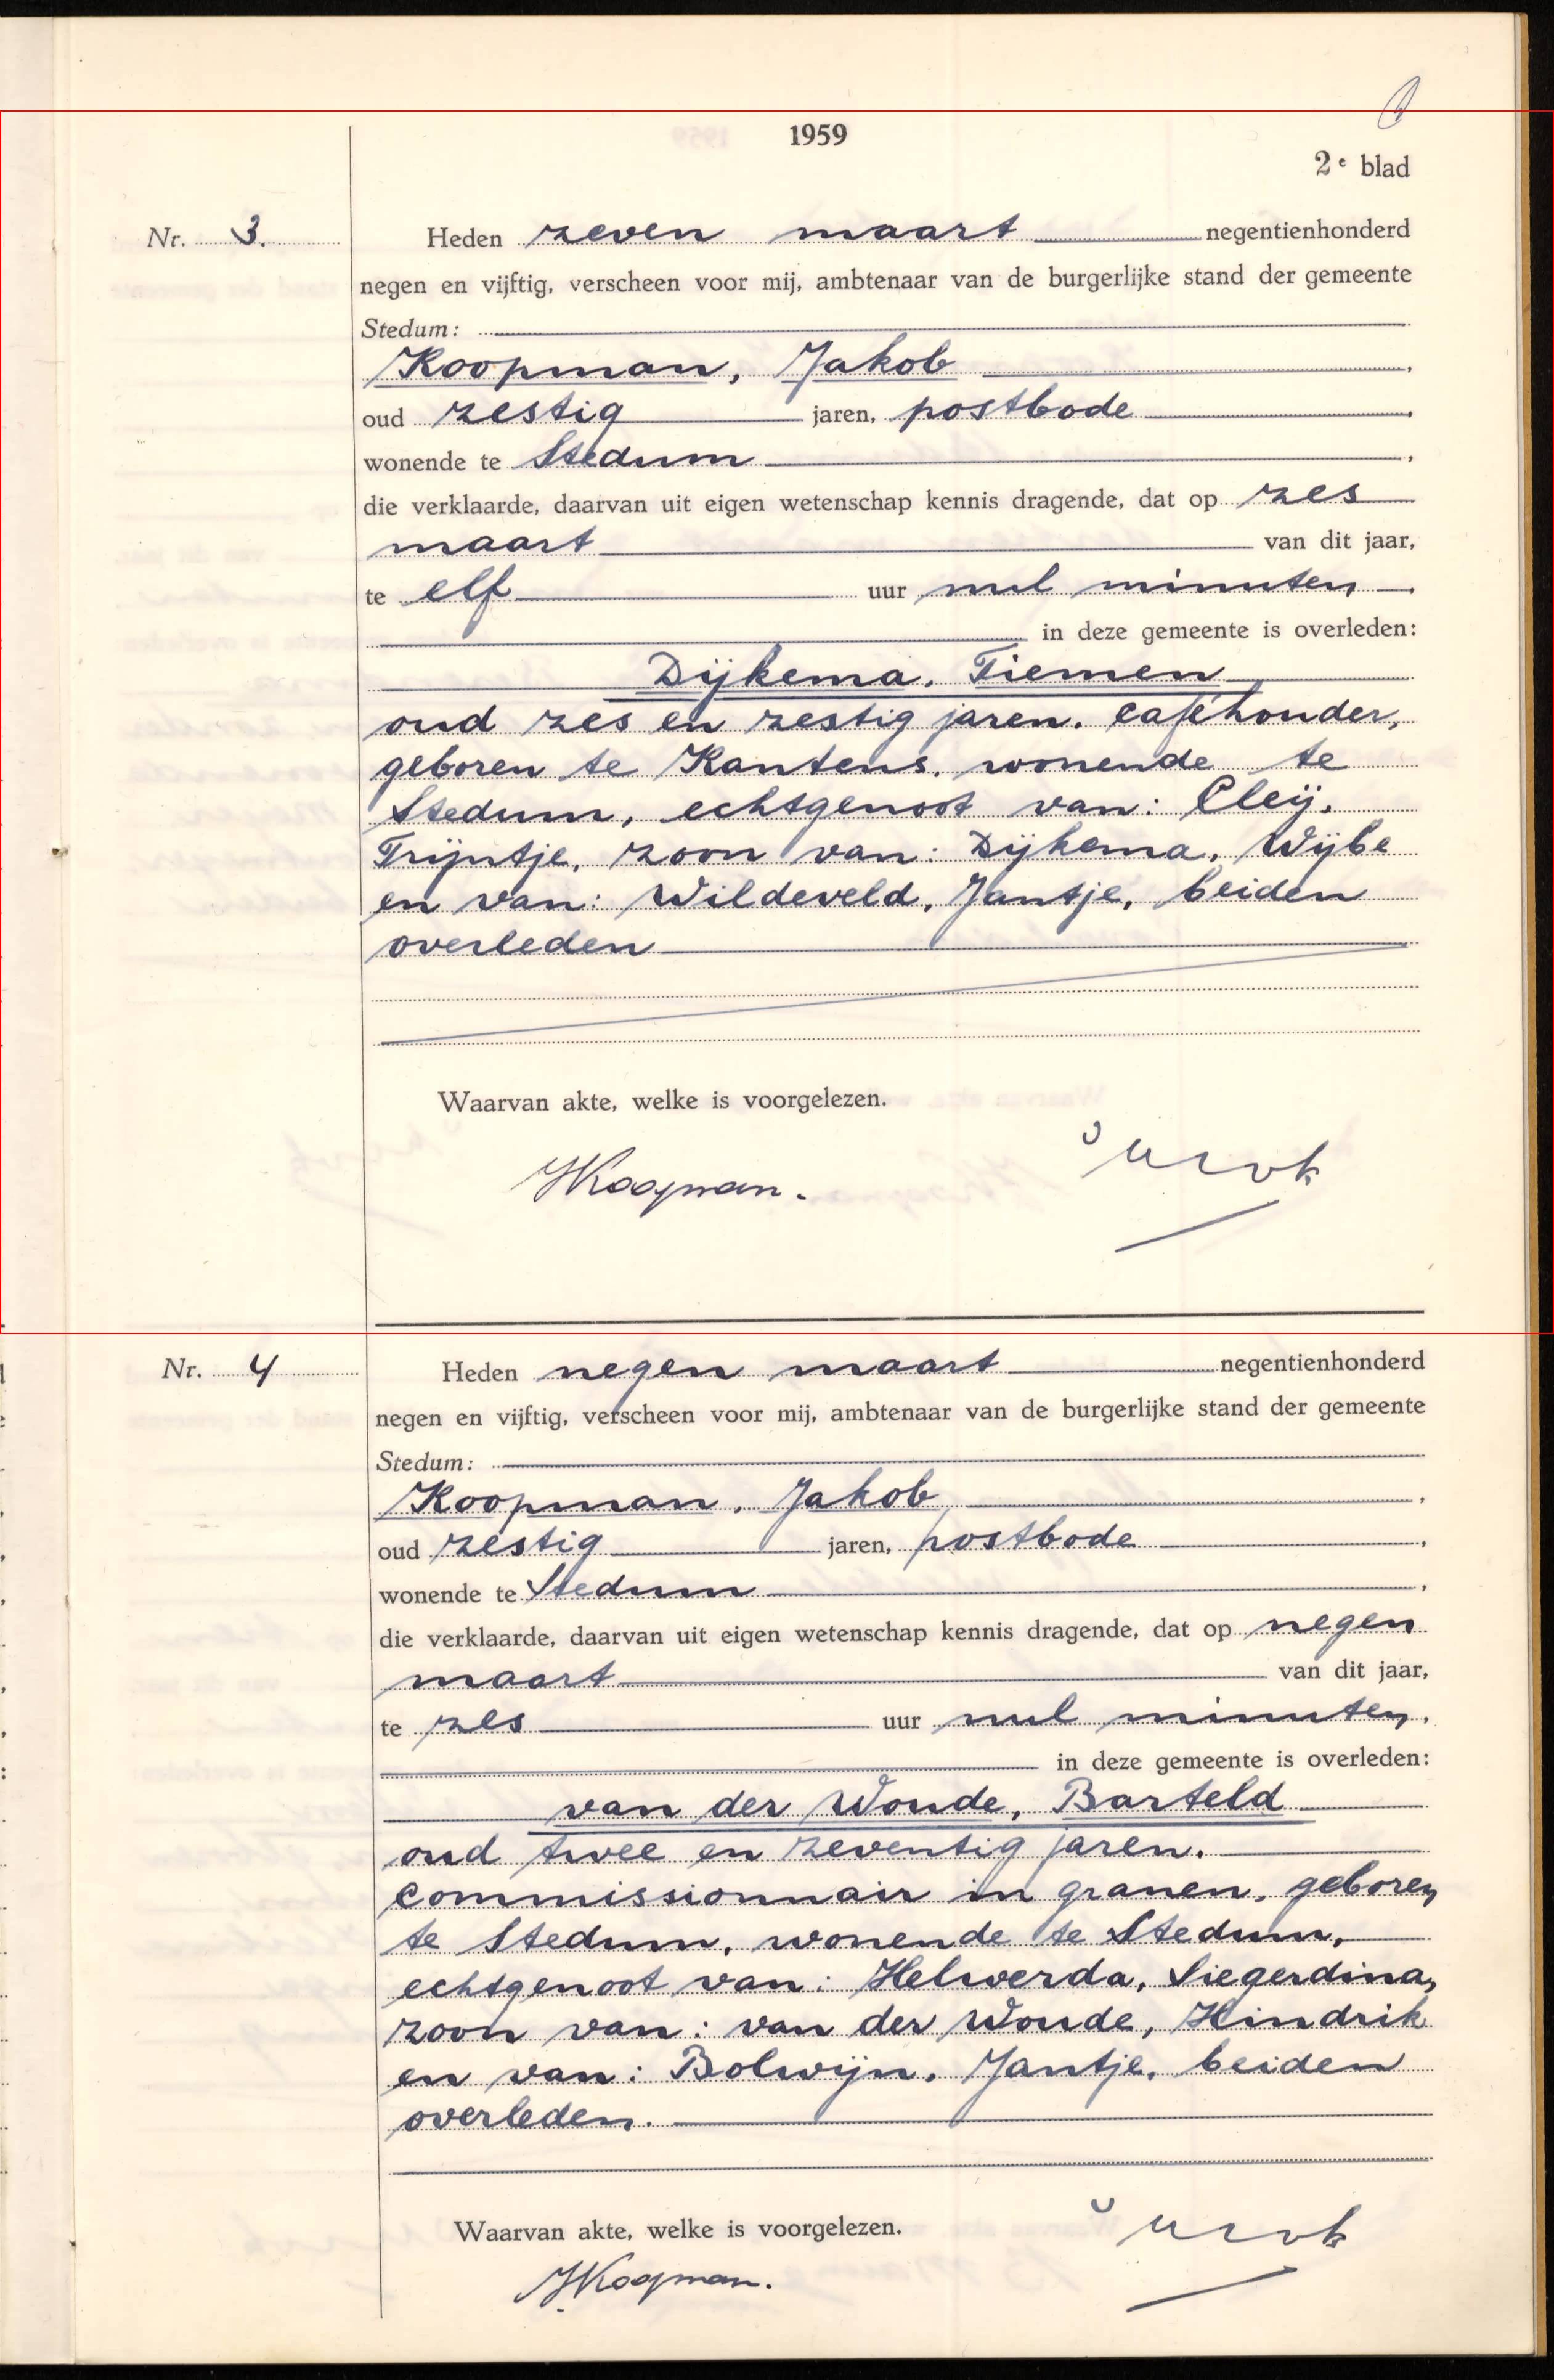 1959
2e blad
Nr. 3.
Heden zeven maart negentienhonderd
negen en vijftig, verscheen voor mij, ambtenaar van de burgerlijke stand der gemeente
Stedum:
Koopman, Jakob,
oud zestig jaren, postbode,
wonende te Stedum,
die verklaarde, daarvan uit eigen wetenschap kennis dragende, dat op zes
maart van dit jaar,
te elf uur nul minuten,
in deze gemeente is overleden:
Dijkema, Tiemen
oud zes en zestig jaren, caféhouder,
geboren te Kantens, wonende te
Stedum, echtgenoot van: Cleij,
Trijntje, zoon van: Dijkema, Wijbe
en van: Wildeveld, Jantje, beiden
overleden
Waarvan akte, welke is voorgelezen.
JKoopman.
Nr. 4
Heden negen maart negentienhonderd
negen en vijftig, verscheen voor mij, ambtenaar van de burgerlijke stand der gemeente
Stedum:
Koopman, Jakob,
oud zestig jaren, postbode,
wonende te Stedum,
die verklaarde, daarvan uit eigen wetenschap kennis dragende, dat op negen
maart van dit jaar,
te zes uur nul minuten,
in deze gemeente is overleden:
van der Woude, Barteld
oud twee en zeventig jaren,
commissionnair in granen, geboren
te Stedum, wonende te Stedum,
echtgenoot van: Helwerda, Siegerdina,
zoon van: van der Woude, Hindrik
en van: Bolwijn, Jantje, beiden
overleden.
Waarvan akte, welke is voorgelezen.
JKoopman.